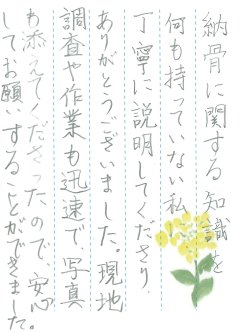 納骨に関する知識を
何も持っていない私に
丁寧に説明してくださり、
ありがとうございました。現地
調査や作業も迅速で、写真
も添えてくださったので、安心
してお願いすることができました。